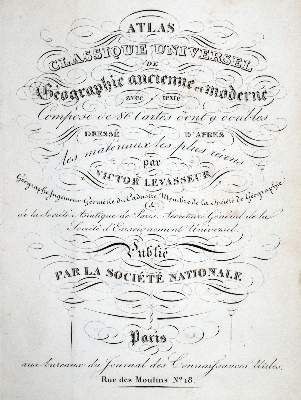 ATLAS
CLASSIQUE UNIVERSEL
DE
Géographie ancienne et moderne
avec texte
Composé de 80 Cartes dont 9 doubles
DRESSÉ D'APRÈS
les matériaux les plus récens
par
VICTOR LEVASSEUR,
Géographe Ingénieur Géomètre du Cadastre Membre de la Société de Géographie
de la Société Asiatique de Paris, Secrétaire Général de la
Société d'Enseignement Universel.
Publié
PAR LA SOCIÉTÉ NATIONALE
Paris
aux bureaux du Journal des Connaissances Utiles,
Rue des Moulins No. 18.